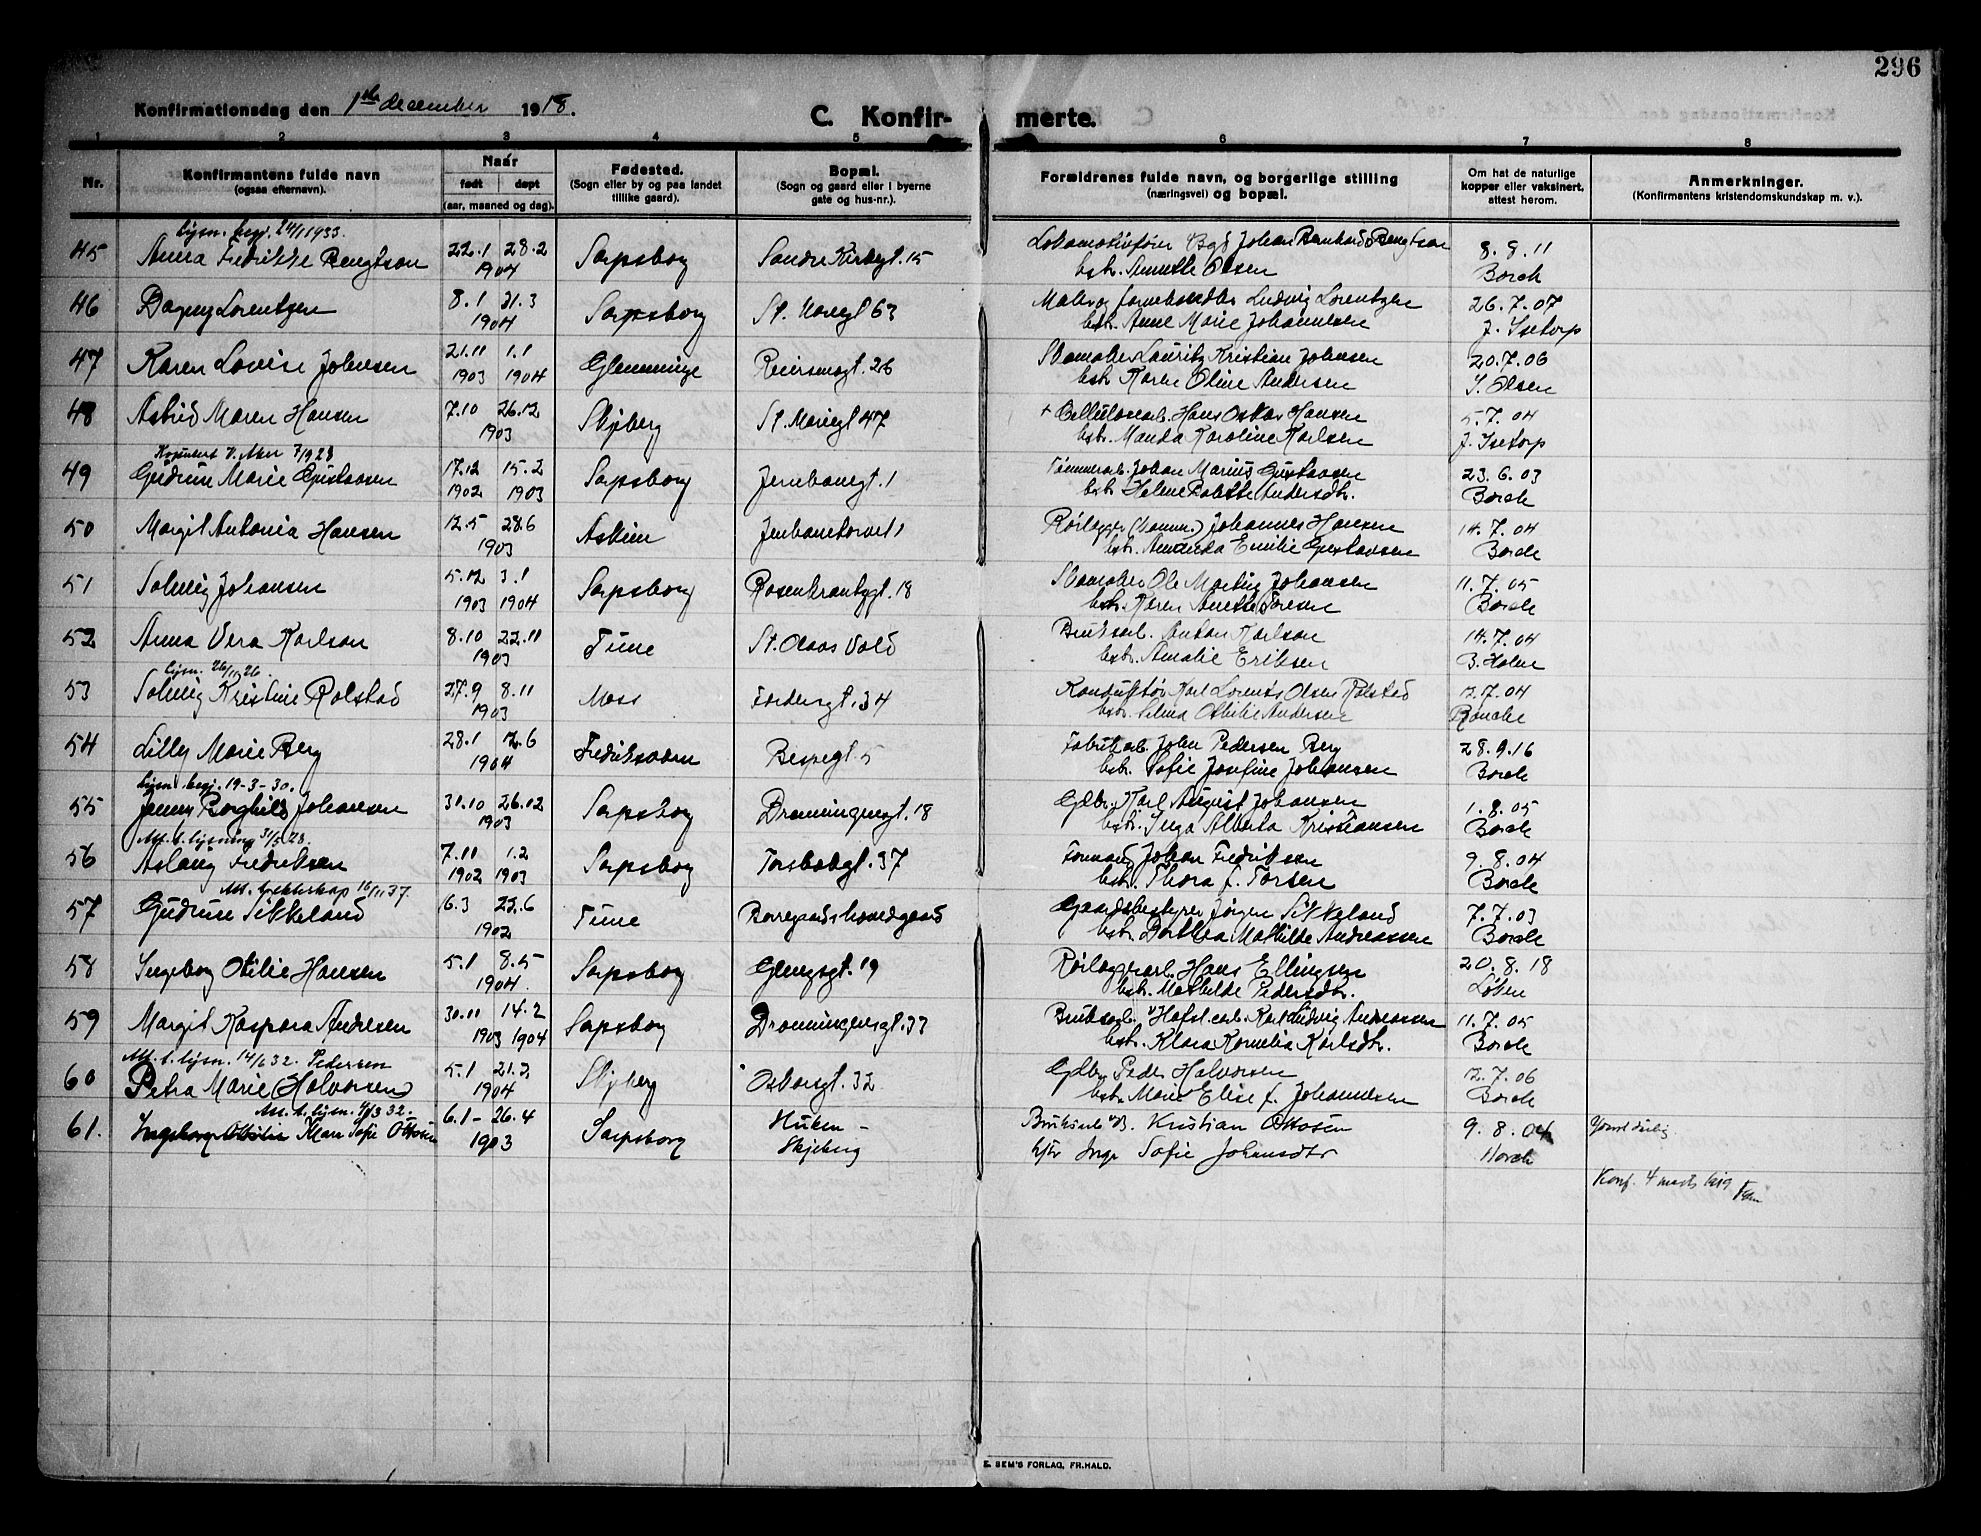 296
Konfirmationsdag den 1ste december 1918.
C. Konfir- merte.
1 2 3 4 5 6 7 8
Nr.
Konfirmantens fulde navn
(ogsaa efternavn).
Naar
født døpt
(aar, maaned og dag).
Fødested.
(Sogn eller by og paa landet
tillike gaard).
Bopæl.
(Sogn og gaard eller i byerne
gate og hus-nr.).
Forældrenes fulde navn, og borgerlige stilling
(næringsvei) og bopæl.
Om hat de naturlige
kopper eller vaksinert,
attest herom.
Anmerkninger.
(Konfirmantens kristendomskundskap m. v.).
lysn. begj. 24/1 1933.
45 Anna Fredrikke Bengtson 22.1 28.2 Sarpsborg Søndre Kirkegt. 15 Lokomotivfører Johan Bernhard Bengtson 8.8.11
1904 hstr. Annette Olsen Borch
46 Dagny Lorentzen 8.1 21.3 Sarpsborg St. Mariegt 63 Maler og farvehandler Ludvig Lorentzen 26.7.07
1904 hstr. Anne Marie Johannesen J. Isetorp
47 Karen Lovise Johansen 21.11 1.1 Glemminge Reiersensgt. 26 Skomaker Lauritz Kristian Johansen 20.7.06
1903 1904 hstr. Karen Oline Andersen S. Olsen
48 Astrid Maren Hansen 7.10 26.12 Skjeberg St. Mariegt 47 + Cellulosearb. Hans Oskar Hansen 5.7.04
1903 hstr. Manda Karoline Karlsen J. Isetorp
V. Aker 7/9 28
49 Gudrun Marie Gustavsen 17.12 15.2 Sarpsborg Jernbanegt. 1 Tømmerarb. Johan Marius Gustavsen 23.6.03
1902 1903 hstr. Helene Bolette Andersdtr. Borch
50 Margit Antonia Hansen 12.5 28.6 Askim Jernbanetorvet 1 Rørlægger Johannes Hansen 14.7.04
1903 hstr. Amanda Emilie Gustavsen Borch
51 Solveig Johansen 5.12 3.1 Sarpsborg Rosenkrantzgt. 18 Skomaker Ole Martin Johansen 11.7.05
1903 1904 hstr. Karen Anette Toresen Borch
52 Anna Vera Karlson 8.10 22.11 Tune St. Olavs Vold Bruksarb. Anton Karlson 14.7.04
1903 hstr. Amalie Eriksen B. Holm
lysn. 26/11 26
53 Solveig Kristine Rolstad 27.9 8.11 Moss 34 Konduktør Karl Lorents Olsen Rolstad 12.7.04
1903 hstr. Selma Othilie Andersen
54 Lilly Marie Berg 28.1 12.6 Fredriksværn 5 Fabrikarb. Johan Pedersen Berg 28.9.16
1904 hstr. Sofie Josefine Johansen Borch
lysn. begj. 19-3-30.
55 Jenny Borghild Johansen 31.10 26.12 Sarpsborg Dronningensgt. 18 Gdbr. Karl August Johansen 1.8.05
1903 hstr. Inga Alberta Kristiansen Borch
Att. t. lysning 31/5 28.
56 Aslaug Fredriksen 7.11 1.2 Sarpsborg Torsbekkgt. 37 Formand Johan Fredriksen 9.8.04
1902 1903 hstr. Thora f. Torsen Borch
Att. t. ekteskap 16/11 37.
57 Gudrun Sikkeland 16.3 22.6 Tune Borregaards hovedgaard Gaardsbestyrer Jørgen Sikkeland 7.7.03
1902 hstr. Dorthea Mathilde Andreassen Borch
58 Ingeborg Otilie Hansen 5.1 8.5 Sarpsborg Glengsgt. 19 Rørlæggerarb. Hans Ellingsen 20.8.18
1904 hstr. Mathilde Pedersdtr. Løken
59 Margit Kaspara Andresen 30.11 14.2 Sarpsborg Dronningensgt. 33 Bruksarb. Karl Ludvig Andreassen 11.7.05
1903 1904 hstr. Klara Kornelia Karlsdtr. Borch
Att. t. lysn. 14/6 32. Pedersen
60 Petra Marie (Halvorsen) 5.1 21.2 Skjeberg Oscarsgt. 32 Gdbr. Peder Halvorsen 12.7.06
1904 hstr. Marie Elise f. Johannesen Borch
Att. t. lysn. 4/3 32.
61. Ingeborg Othilie Klara Sofie Ottosen 6.1- 26.4 Sarpsborg Huken - Bruksarb. Kristian Ottosen 9.8.04
1903 Skjeberg hstr Inga Sofie Johansdtr Borch
Konf. 4 marts 1919
E. SEM'S FORLAG, FR.HALD.